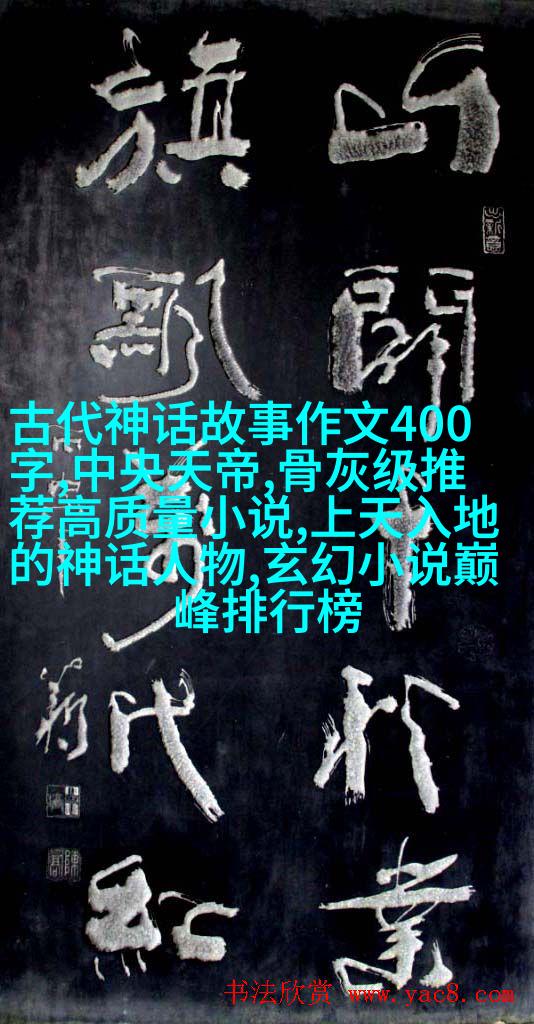 開千秋業
旗飄萬代紅
古代神话故事作文400
字,中央天帝,骨灰级推
荐高质量小说,上天入地
的神话人物,玄幻小说巅
峰排行榜
书法欣赏 www.yac8.com